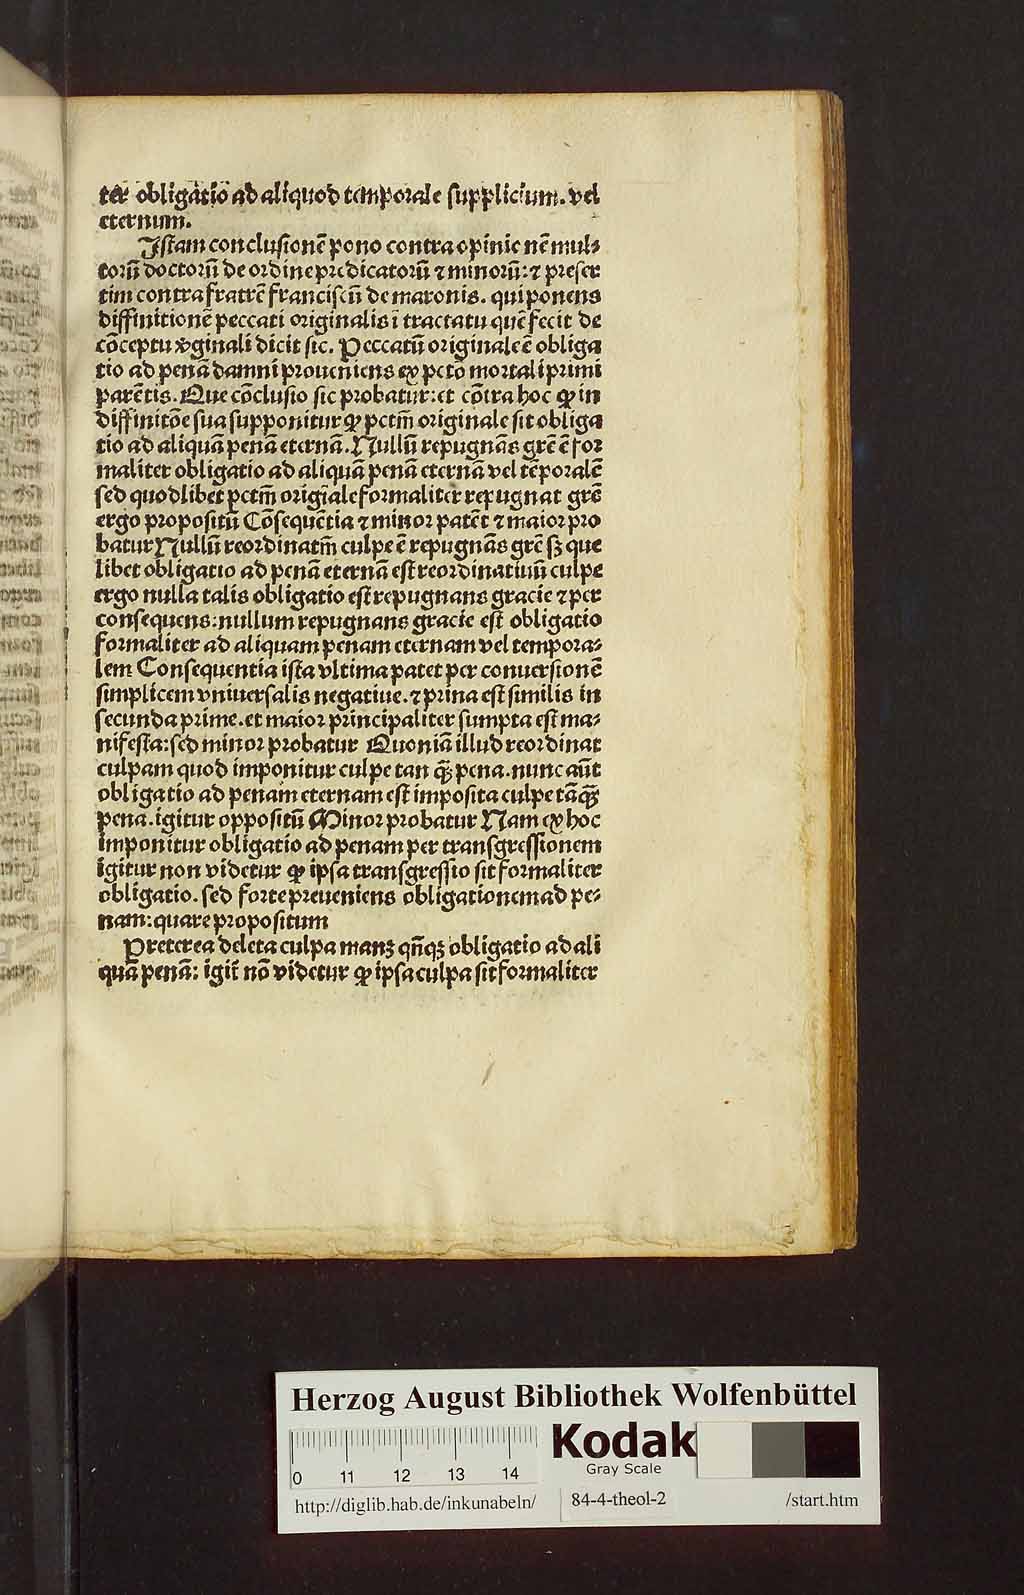 ter obligatiõ ad aliquod temporale supplicium. vel
eternum.
Istam conclusionẽ pono contra opinio nẽ mul⸗
torũ doctorũ de ordine predicatorũ ⁊ minorũ: ⁊ preser
tim contra fratrẽ franciscũ de maronis. qui ponens
diffinitionẽ peccati originalis ĩ tractatu quẽ fecit de
cõceptu v̾ginali dicit sic. Peccatũ originale ẽ obliga
tio ad penã damni proueniens ex pctõ mortali primi
parẽtis. Que cõclusio sic probatur: et cõtra hoc ꝙ in
diffinitõe sua supponitur ꝙ pctm̃ originale sit obliga
tio ad aliquã penã eternã. Nullũ repugnãs grẽ ẽ for
maliter obligatio ad aliquã penã eternã vel tẽporalẽ
sed quodlibet pctm̃ origĩale formaliter repugnat grẽ
ergo propositũ Cõsequẽtia ⁊ minor patẽt ⁊ maior pro
batur Nullũ reordinatm̃ culpe ẽ repugnãs grẽ sꝫ que
libet obligatio ad penã eternã est reordinatiuũ culpe
ergo nulla talis obligatio est repugnans gracie ⁊ per
consequens: nullum repugnans gracie est obligatio
formaliter ad aliquam penam eternam vel tempora⸗
lem Consequentia ista vltima patet per conuersionẽ
simplicem vniuersalis negatiue. ⁊ prina est similis in
secunda prime. et maior principaliter sumpta est ma⸗
nifesta: sed minor probatur Quoniã illud reordinat
culpam quod imponitur culpe tan q̃ꝫ pena. nunc aũt
obligatio ad penam eternam est imposita culpe tãq̃ꝫ
pena. igitur oppositũ Minor probatur Nam ex hoc
imponitur obligatio ad penam per transgressionem
igitur non videtur ꝙ ipsa transgressio sit formaliter
obligatio. sed forte preueniens obligationem ad pe⸗
nam: quare propositum
Preterea deleta culpa manꝫ qñqꝫ obligatio ad ali
quã penã: igit̃ nõ videtur ꝙ ipsa culpa sit formaliter
Herzog August Bibliothek Wolfenbüttel
Kodak
Gray Scale
0 11 12 13 14
http://diglib.hab.de/inkunabeln/ 84-4-theol-2 /start.htm